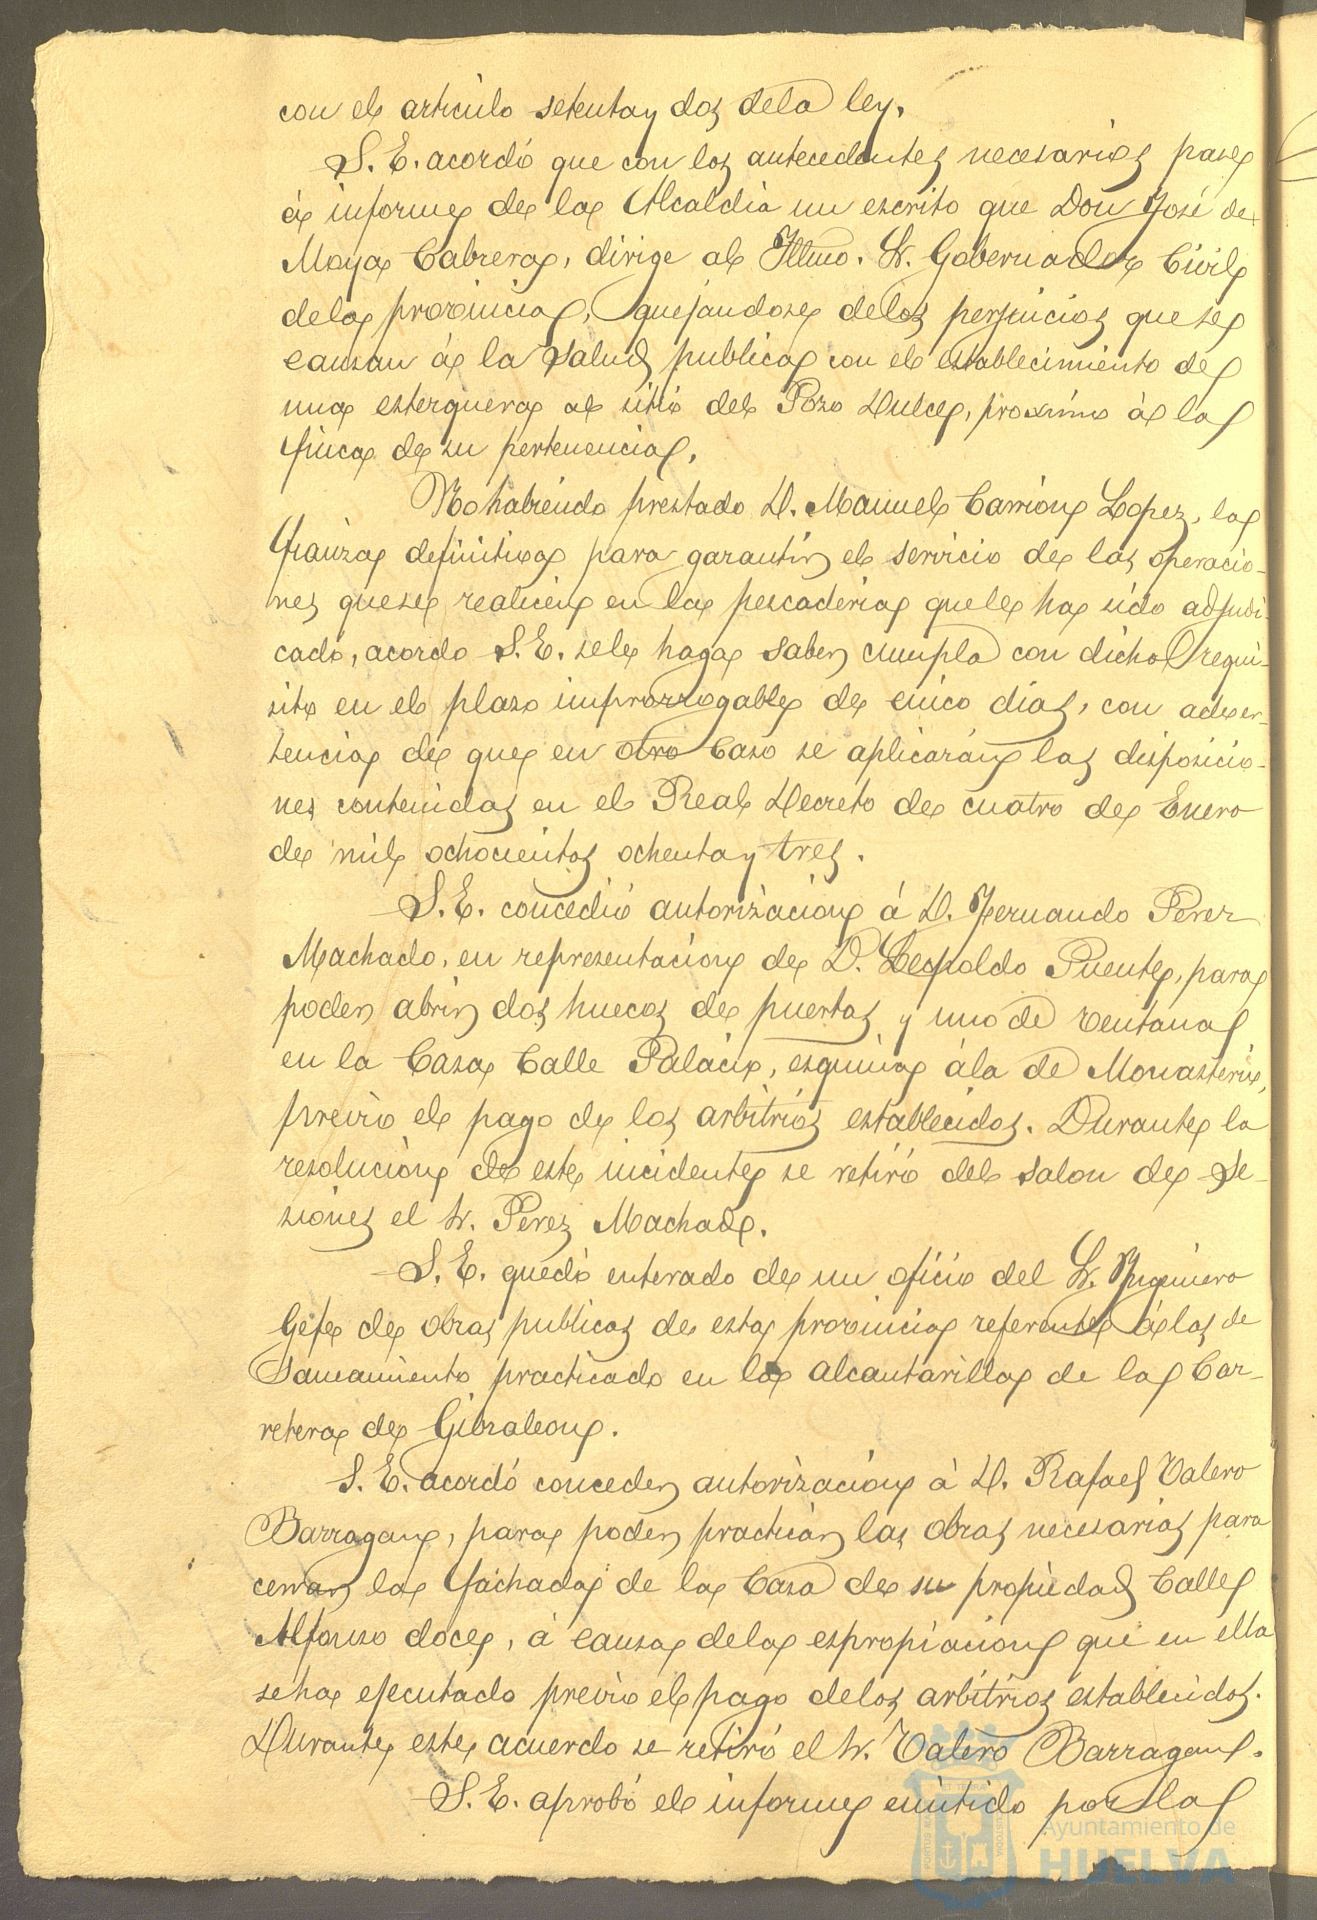 con el articulo setenta y dos de la ley.
S. E. acordó que con los antecedentes necesarios pase
á informe de la Alcaldía un escrito que Don José de
Moya Cabrera, dirige al Iltmo. Sr. Gobernador Civil
de la provincia, quejandose de los perjuicios que se
causan á la salud publica con el establecimiento de
una esterquera al sitio del Pozo Dulce, proximo á la
finca de su pertenencia.
No habiendo prestado D. Manuel Carrion Lopez, la
fianza definitiva para garantir el servicio de las operacio-
nes que se realicen en la pescaderia que le ha sido adjudi-
cado, acordo S. E. se le haga saber cumpla con dicho requi-
sito en el plazo improrrogable de cinco dias, con adver-
tencia de que en otro caso se aplicarán las disposicio-
nes contenidas en el Real Decreto de cuatro de Enero
de mil ochocientos ochenta y tres.
S. E. concedió autorizacion á D. Fernando Perez
Machado, en representacion de D. Leopoldo Puente, para
poder abrir dos huecos de puertas y uno de ventana
en la Casa Calle Palacio, esquina á la de Monasterio,
previo el pago de los arbitrios establecidos. Durante la
resolucion de este incidente se retiró del salon de Se-
siones el Sr. Perez Machado.
S. E. quedó enterado de un oficio del Sr. Ingeniero
Gefe de obras publicas de esta provincia referente á las de
Saneamiento practicado en la alcantarilla de la Car-
retera de Gibraleon.
S. E. acordó conceder autorizacion á D. Rafael Valero
Barragan, para poder practicar las obras necesarias para
cerrar la fachada de la Casa de su propiedad Calle
Alfonso doce, á causa de la espropiacion que en ella
se ha ejecutado previo el pago de los arbitrios establecidos.
Durante este acuerdo se retiró el Sr. Valero Barragan.
S. E. aprobó el informe emitido por la
Ayuntamiento de
HUELVA